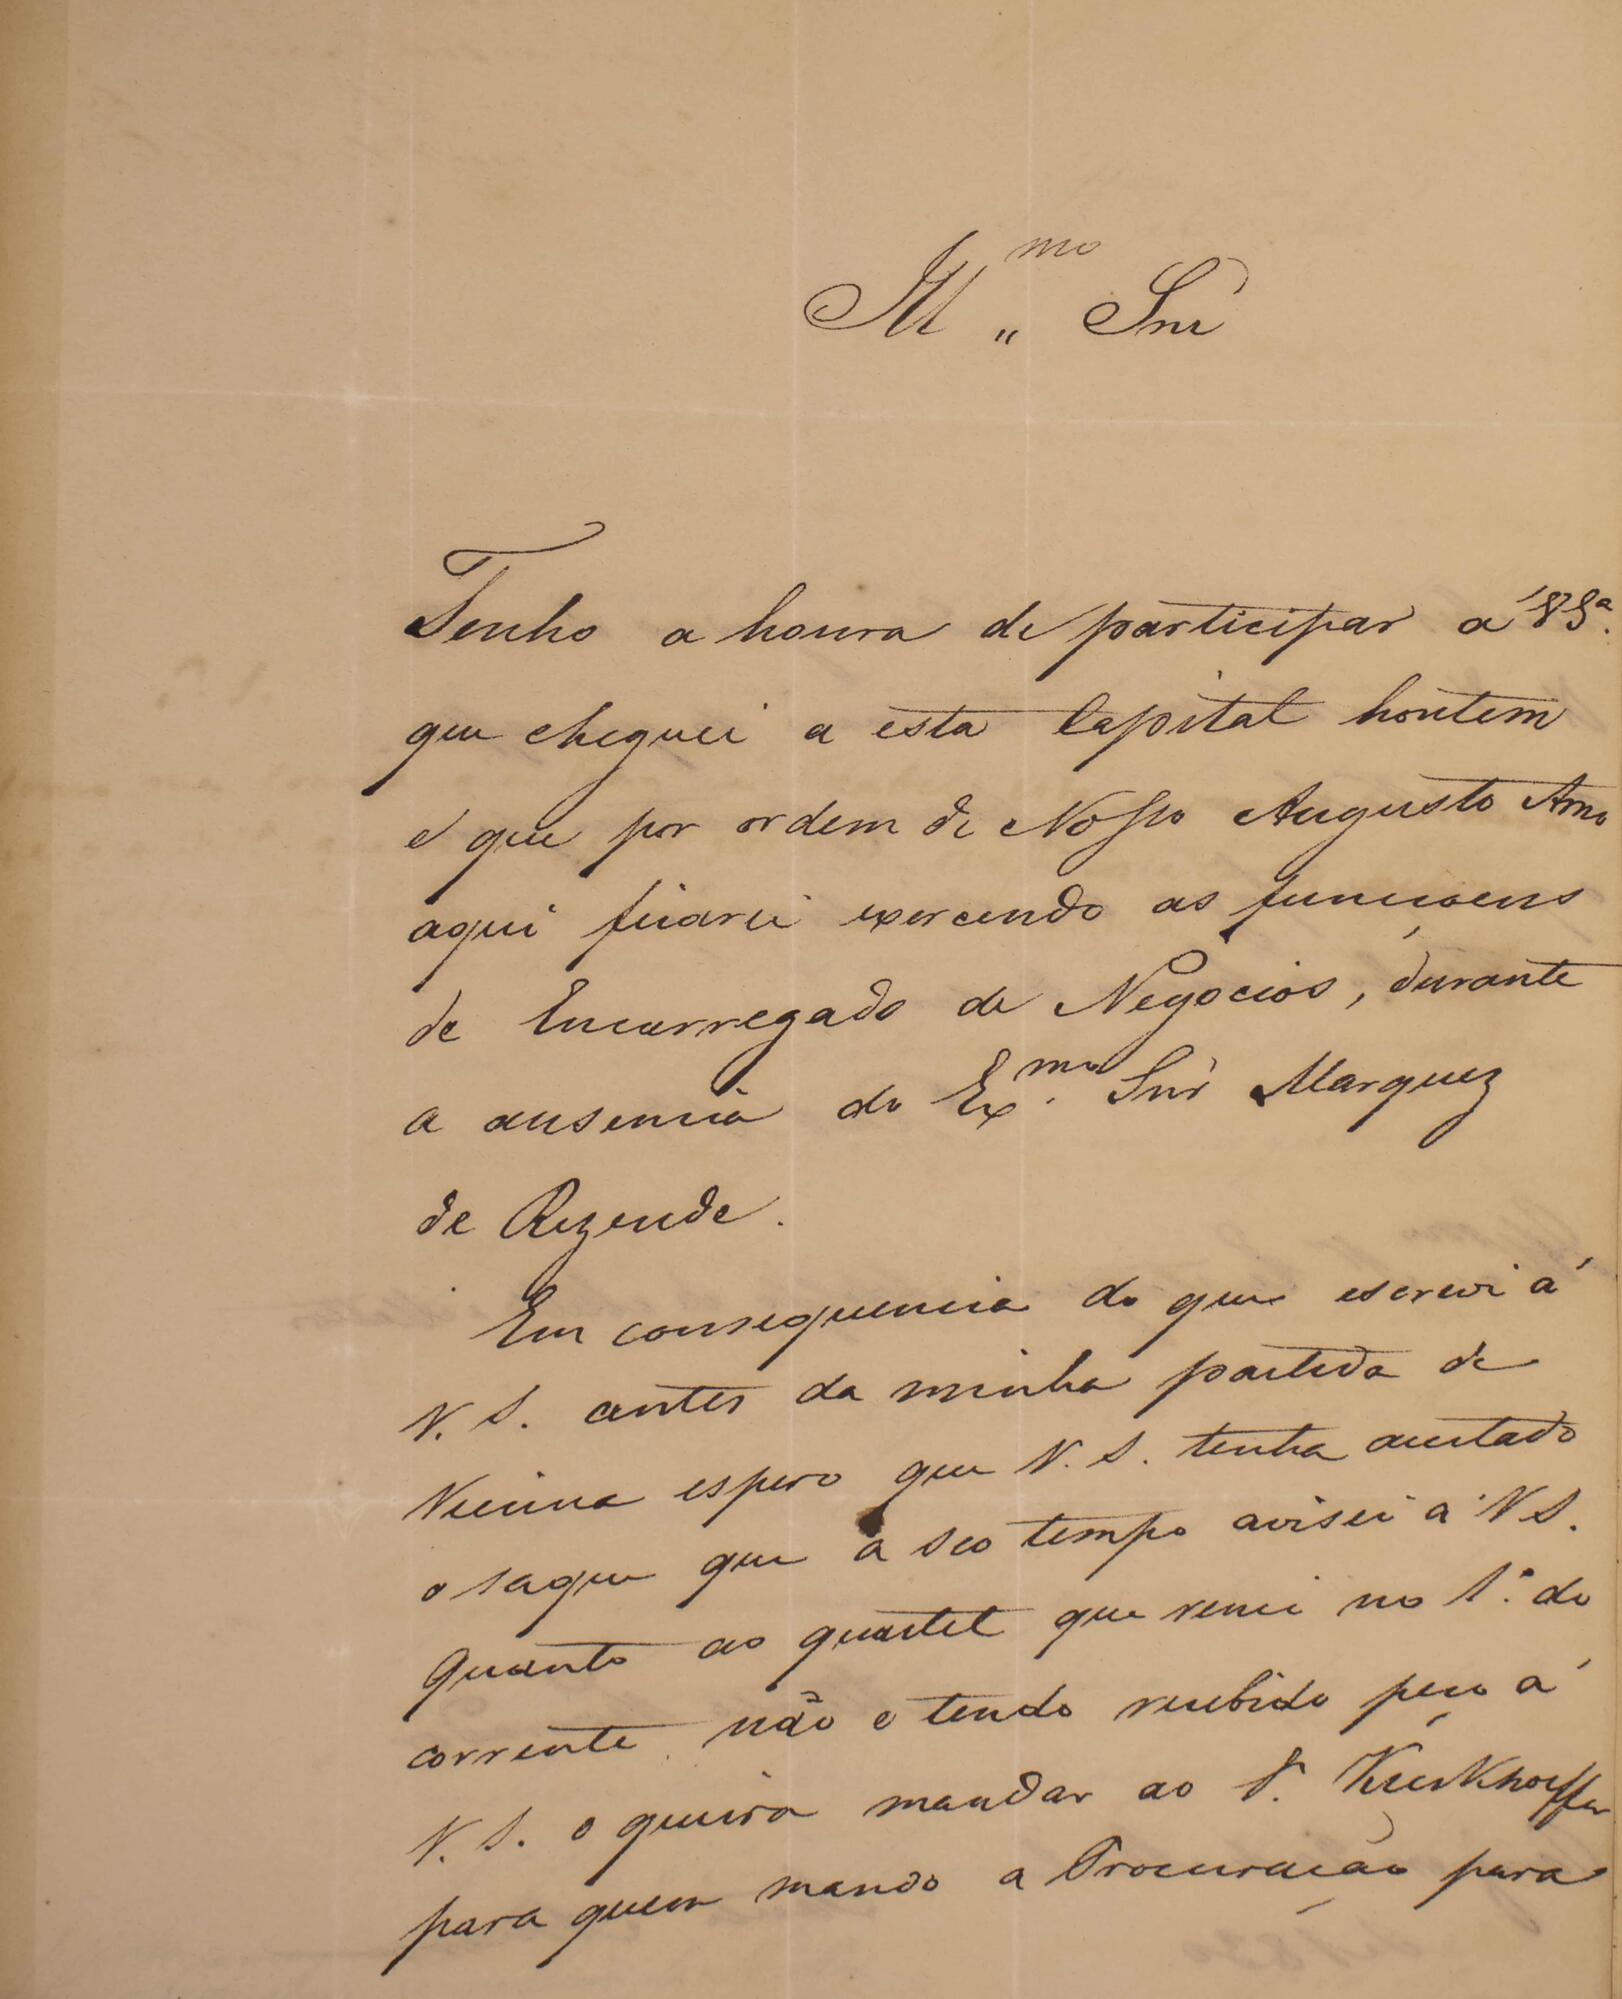 Ill.mo Snr
Tenho a honra de participar a' VSª.
que cheguei a esta Capital hontem
e que por ordem de Nosso Augusto Amo
aqui ficarei exercendo as funcçoens
de Encarregado de Negocios, durante
a ausencia do Ex.mo Snr Marquez
de Rezende.
Em consequencia do que escrevi á
V. S. antes da minha partida de
Vienna espero que V. S. tenha aceitado
o saque que a seo tempo avisei a V S.
Quanto ao quartel que venci no 1.º do
corrente não o tendo recebido peço á
V. S. o queira mandar ao S.
para quem mando a Procuração para